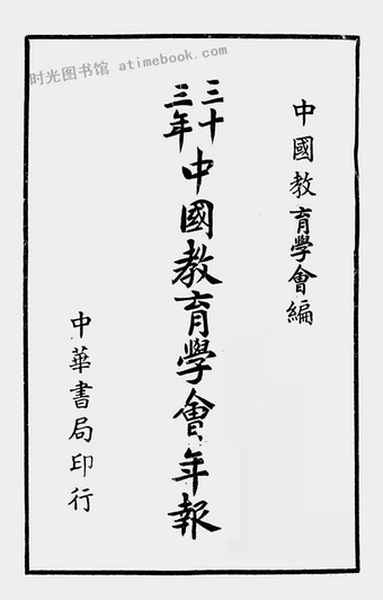 时光图书馆 atimebook.com
中國教育學會編
三十三年
中國教育學會年報
中華書局印行